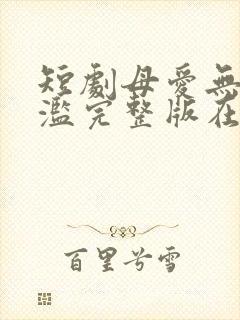 短劇母愛無
濫完整版在
百里兮雪